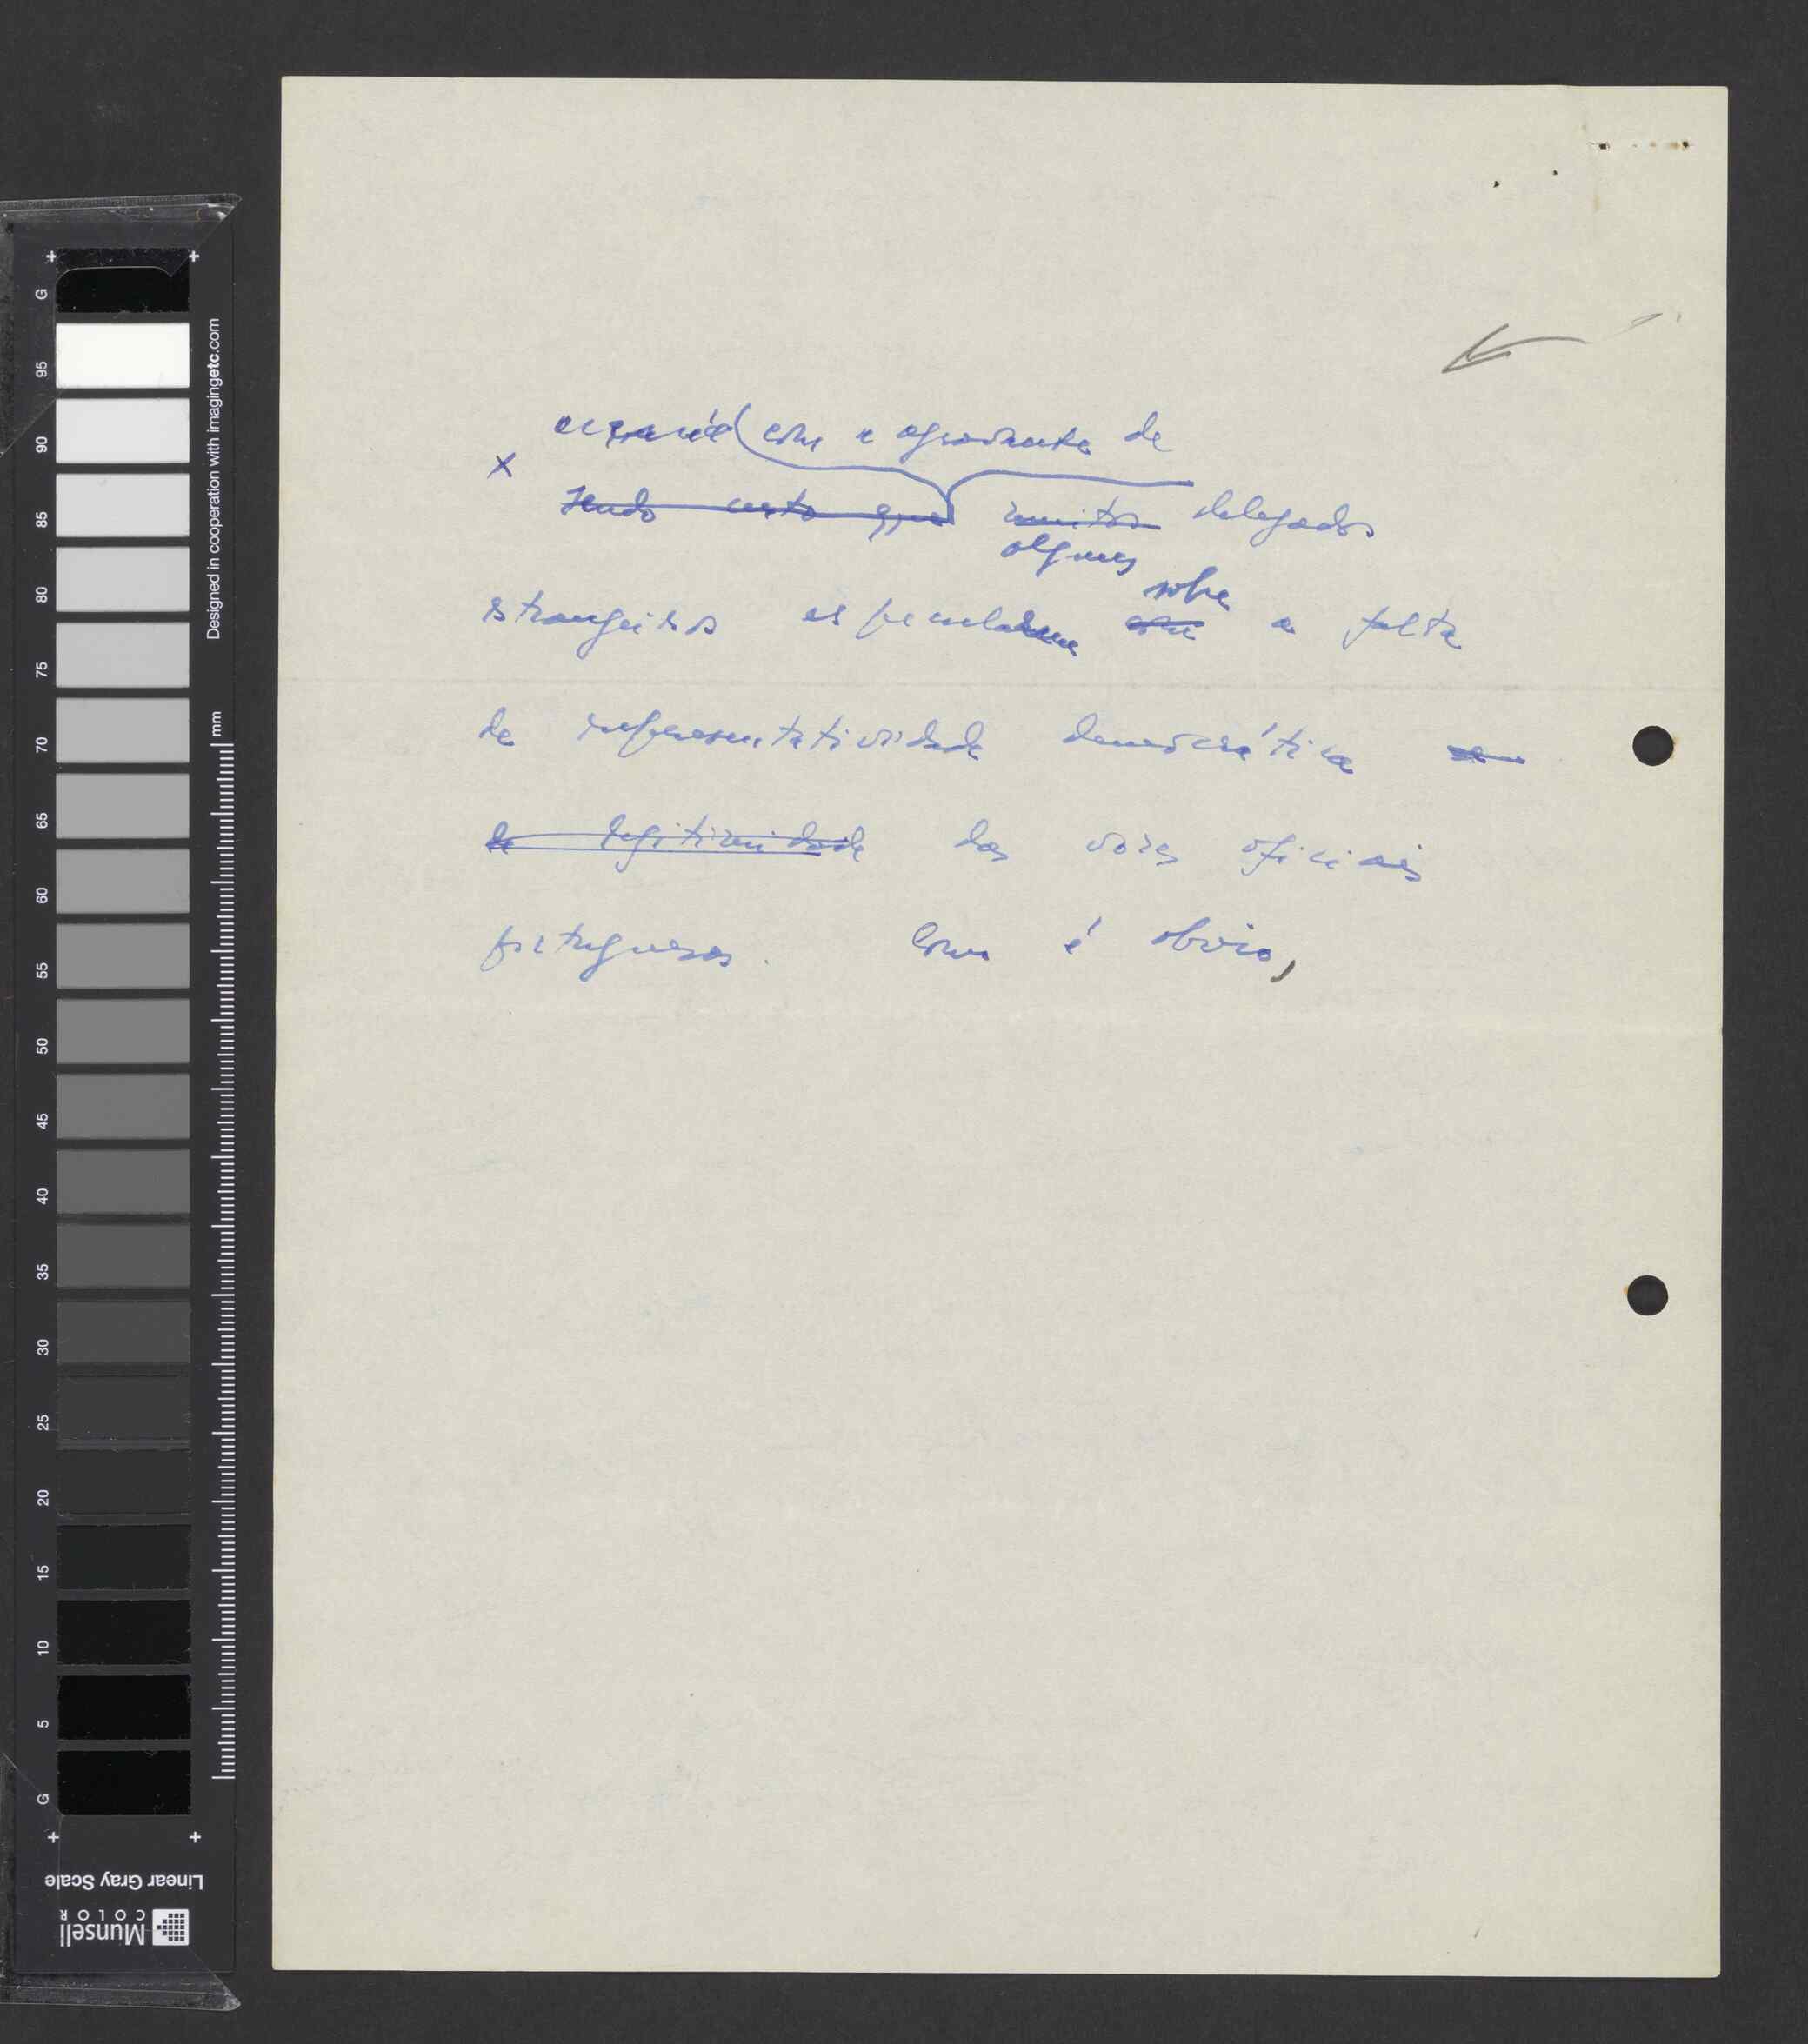 com a agravante de
x
sendo certo que muitos delegados
alguns
sobre
estrangeiros especularem com a falta
de representatividade democrática
de legitimidade das vozes oficiais
portuguesas. Como é obvio,
G
95
90
85
80
75
70
65
60
55
50
45
40
35
30
25
20
15
10
5
G
Designed in cooperation with imagingetc.com
mm
Linear Gray Scale
Munsell
COLOR